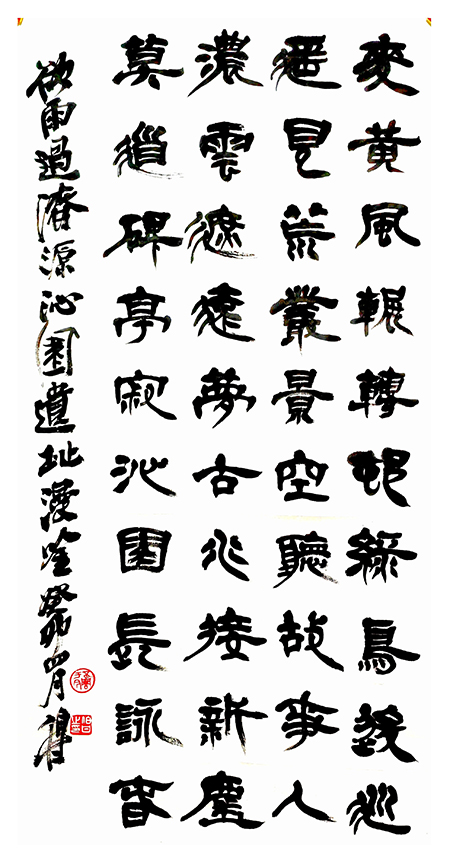 麥黃風輾轉邨綠鳥逡巡
見荒叢景空聽故事人
濃雲遮遠夢古接新塵
莫道碑亭寂沁園長詠春
欲雨過濟源沁園遺址漫吟癸卯四月